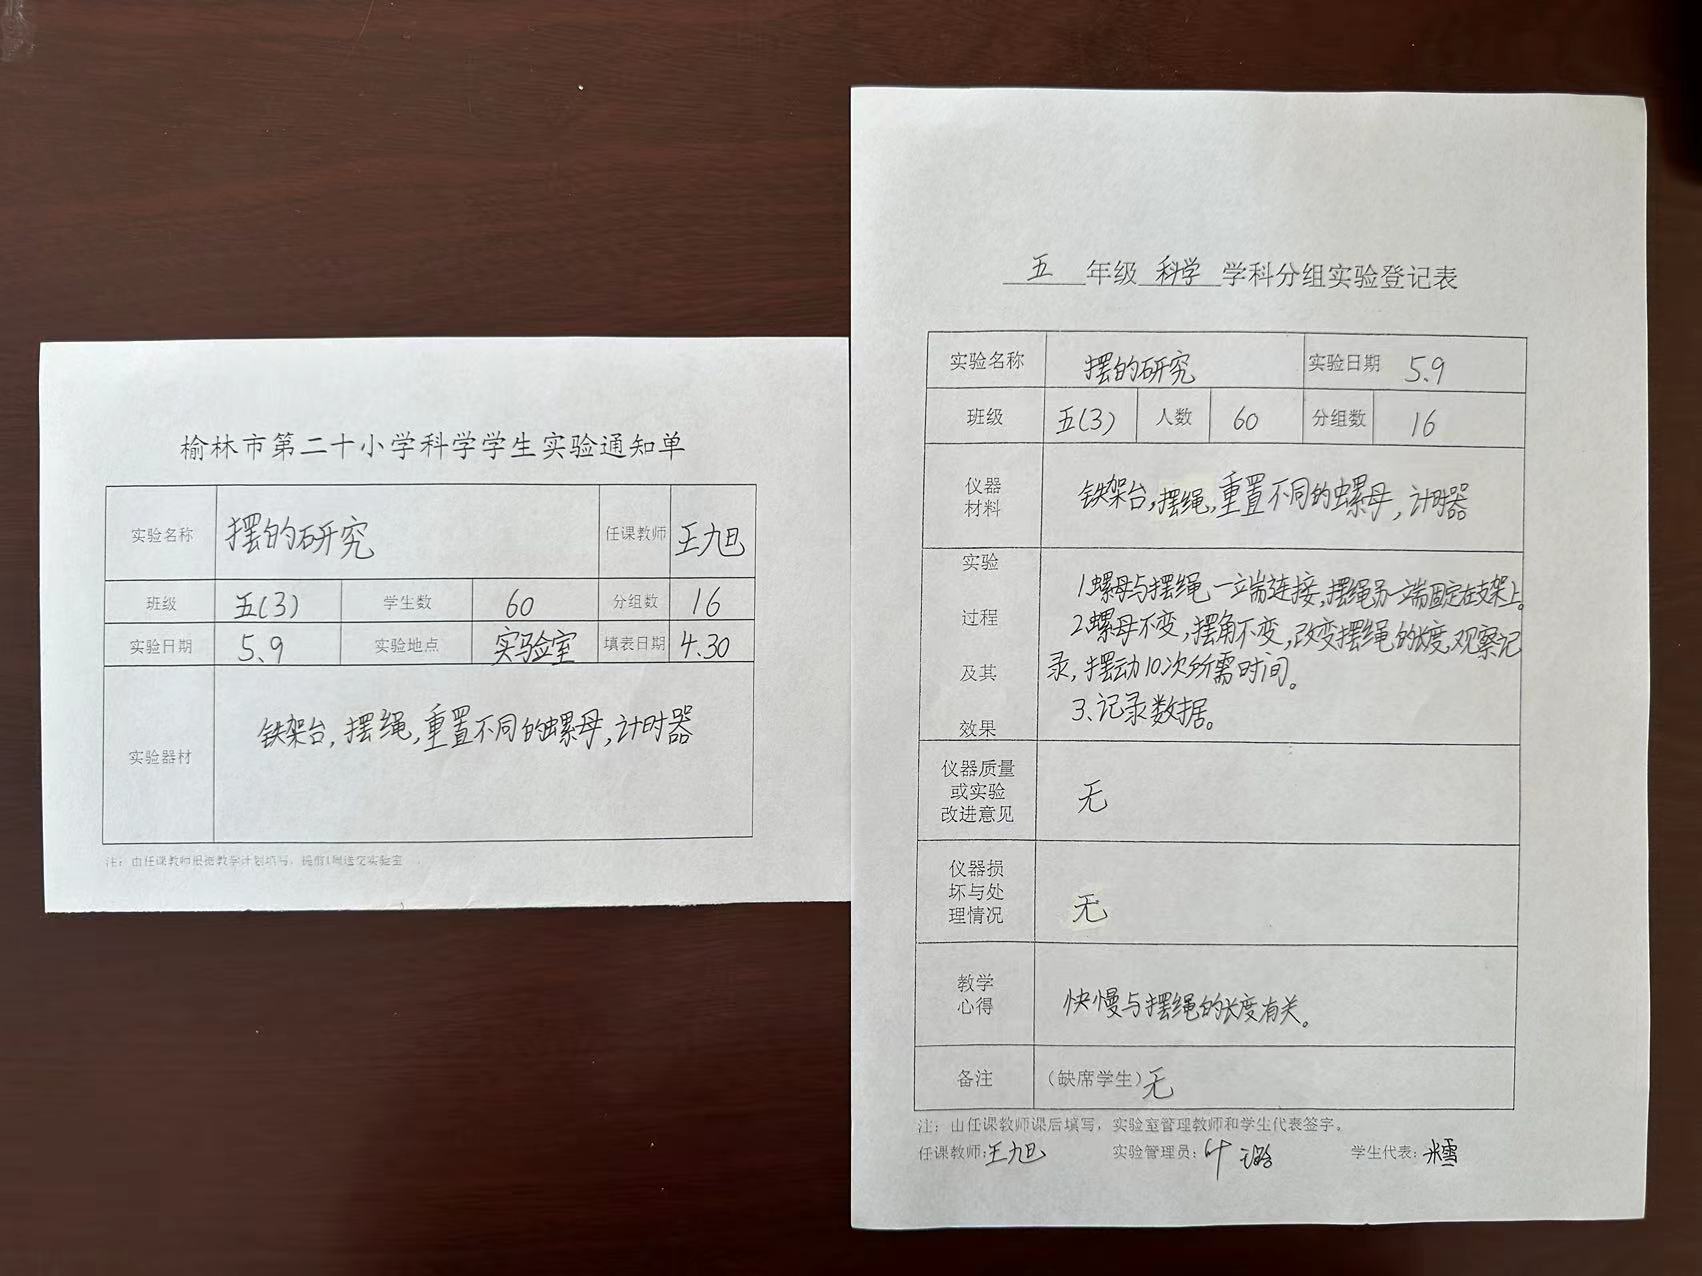 榆林市第二十小学科学学生实验通知单
实验名称 摆的研究 任课教师 王旭
班级 五(3) 学生数 60 分组数 16
实验日期 5.9 实验地点 实验室 填表日期 4.30
实验器材 铁架台,摆绳,重置不同的螺母,计时器
注:由任课教师根据教学计划填写,提前1周送交实验室
五 年级 科学 学科分组实验登记表
实验名称 摆的研究 实验日期 5.9
班级 五(3) 人数 60 分组数 16
仪器
材料
铁架台,摆绳,重置不同的螺母,计时器
实验
过程
及其
效果
1.螺母与摆绳一端连接,摆绳另一端固定在支架上。
2.螺母不变,摆角不变,改变摆绳的长度,观察记
录,摆动10次所需时间。
3、记录数据。
仪器质量
或实验
改进意见
无
仪器损
坏与处
理情况
无
教学
心得
快慢与摆绳的长度有关。
备注 (缺席学生)无
注:由任课教师课后填写,实验室管理教师和学生代表签字。
任课教师:王旭 实验管理员:叶璐 学生代表: